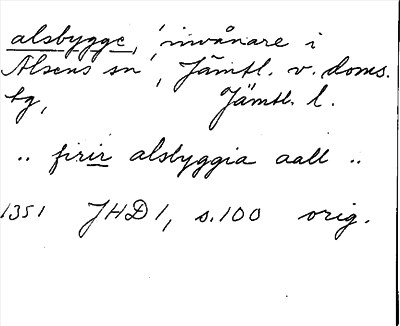 alsbygge, 'invånare i
Alsens sn', Jämtl. v. doms.
tg, Jämtl. l.
.. firir alsbyggia aall ..
1351 JHD 1, s. 100 orig.